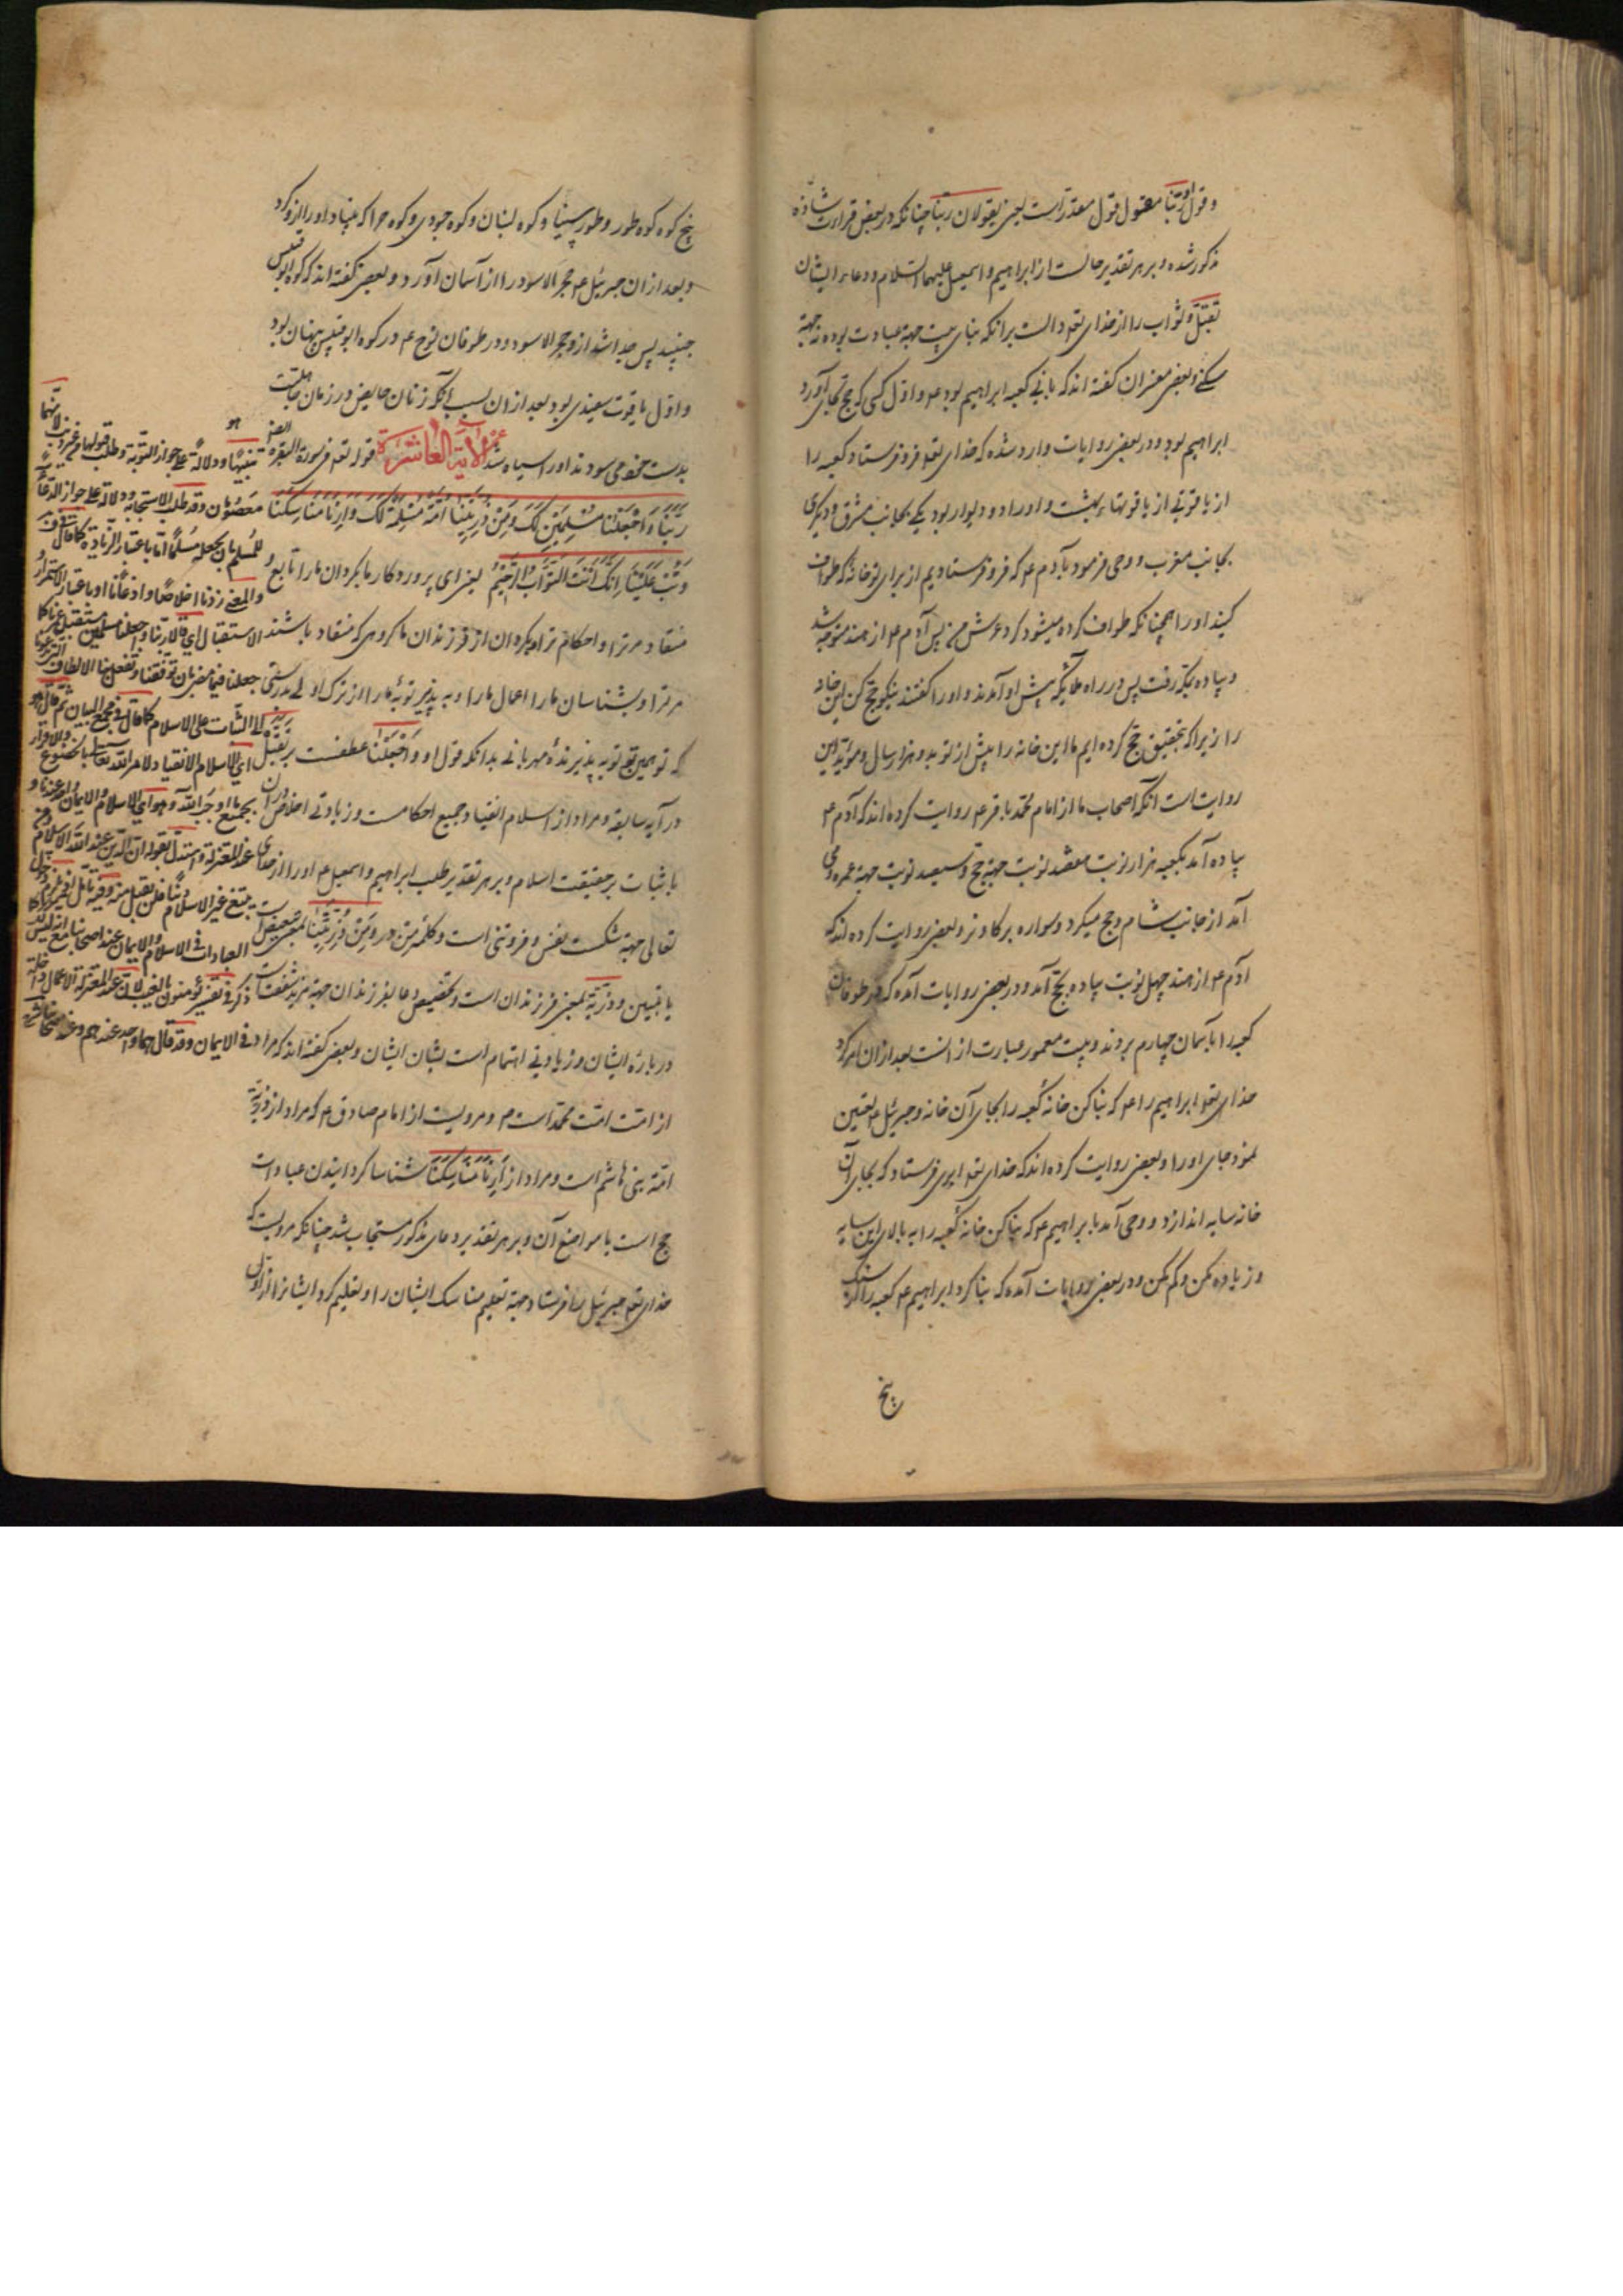 و قول او ربنا مقول قول مقدر است یعنی یقولان ربنا چنانکه در بعض قراءت شاذه
مذکور شده و بر هر تقدیر حالست از ابراهیم و اسمعیل علیهما السلام و دعاء ایشان
تقبل ثواب را از خدای تعه دالست برانکه بنای بیت جهة عبادت بوده نه جهة
سکنی و بعضی مفسران گفته اند که بانی کعبه ابراهیم بود عم و اول کسی که حج بجای آورد
ابراهیم بود و در بعضی روایات وارد شده که خدای تعه فرو فرستاد کعبه را
از یاقوتی از یاقوتهاء بهشت و او را دو دیوار بود یکی بجانب مشرق و دیگری
بجانب مغرب و وحی فرمود بآدم عم که فرو فرستادیم از برای تو خانهٔ که طواف
کنید او را همچنانکه طواف کرده میشود کرد عرش من پس آدم عم از هند متوجه شد
و پیاده بمکه رفت پس در راه ملایکه پیش او آمدند و او را گفتند نیکو حج کن این خانه
را زیرا که بتحقیق حج کرده ایم ما این خانه را پیش از تو بدو هزار سال و مؤید این
روایت است انکه اصحاب ما از امام محمد باقر عم روایت کرده اند که آدم عم
پیاده آمد بکعبه هزار نوبت هفتصد نوبت جهة حج و سیصد نوبت جهة عمره و می
آمد از جانب شام و حج میکرد و سواره بر کاو نر و بعضی روایت کرده اند که
آدم عم از هند چهل نوبت پیاده بحج آمد و در بعضی روایات آمده که در طوفان
کعبه را بآسمان چهارم بردند و بیت معمور عبارت از انست بعد از ان امر کرد
خدای تعه ابراهیم را عم که بنا کن خانه کعبه را بجای آن خانه و جبرئیل عم تعیین
نمود جای او را و بعضی روایت کرده اند که خدای تعه ابری فرستاد که بجای آن
خانه سایه اندازد و وحی آمد بابراهیم عم که بنا کن خانه کعبه را به بالای این سایه
و زیاده مکن و کم مکن و در بعضی روایات آمده که بنا کرد ابراهیم عم کعبه را از سنک
پنج
پنج کوه کوه طور و طور سینا و کوه لبنان و کوه جودی و کوه حرا که بنیاد او را از و کرد
و بعد از ان جبرئیل عم حجر الاسود را از آسمان آورد و بعضی گفته اند که کوه ابو قبیس
جنبید پس جدا شد از و حجر الاسود و در طوفان نوح عم در کوه ابو قبیس پنهان بود
و اول یاقوت سفیدی بود بعد از ان بسبب آنکه زنان حایض در زمان جاهلیت
بدست خود می سودند او را سیاه شد الآیة العاشرة قوله تعه فی سورة البقرة
ربنا واجعلنا مسلمین لک ومن ذریتنا امة مسلمة لک وارنا مناسکنا
وتب علینا انک انت التواب الرحیم یعنی ای پروردکار ما بکردان ما را تابع و
منقاد مر ترا و احکام ترا و بکردان از فرزندان ما کروهی که منقاد باشند
مر ترا و بشناسان ما را اعمال ما را و به پذیر توبهٔ ما را از ترک اولی بدرستی
که تو همین تو توبه پذیرندهٔ مهربانی بدانکه قول او واجعلنا عطفست بر تقبل
در آیه سابقه و مراد از اسلام انقیاد جمیع احکامست و زیادتی اخلاص دران
یا ثبات بر حقیقت اسلام و بر هر تقدیر طلب ابراهیم و اسمعیل عم او را از خدای
تعالی جهة شکست نفس و فروتنی است و کلمهٔ من در ومن ذریتنا بمعنی تبعیض است
یا تبیین و ذریة بمعنی فرزندان است و تخصیص دعا بفرزندان جهة مزید شفقت است
دربارهٔ ایشان و زیادتی اهتمام است بشان ایشان و بعضی گفته اند که مراد
از امت امت محمد است ص و مرویست از امام صادق عم که مراد از ذریة
امة بنی هاشم است و مراد از ارنا مناسکنا شناسا کردانیدن عبادات
حج است یا مواضع آن و بر هر تقدیر دعای مذکور مستجاب شد چنانکه مرویست که
خدای تعه جبرئیل را فرستاد جهة تعلیم مناسک ایشان را و تعلیم کرد ایشانرا از اول
تنبیها و دلالة علی جواز التوبة وطلب قبولها
معصومان وقد طلب الاستجابة ودلالة علی جواز الدعاء
للمسلم بان یجعله مسلما اما باعتبار الزیادة کما قال
والمعنی زدنا اخلاصا واذعانا او باعتبار الاستمرار
الاستقبال ای قالا ربنا واجعلنا مسلمین
جعلنا فیما مضی بان توفقنا وتفعل بنا الالطاف
الی الثبات علی الاسلام کما قال فی مجمع البیان ثم قال
ای الاسلام الانقیاد لامر الله تعالی بالخضوع والاقرار
بجمیع ما اوجب الله وهو ای الاسلام والایمان واحد عندنا و
عند المعتزلة واستدل بقوله ان الدین عند الله الاسلام
یبتغ غیر الاسلام دینا فلن یقبل منه
العبادات فی الاسلام والایمان عند اصحابنا
ذکر فی تفسیر یؤمنون بالغیب لان عند المعتزلة الاعمال داخلة
فی الایمان وقد قال انهما واحد عندهم وعند اصحابنا